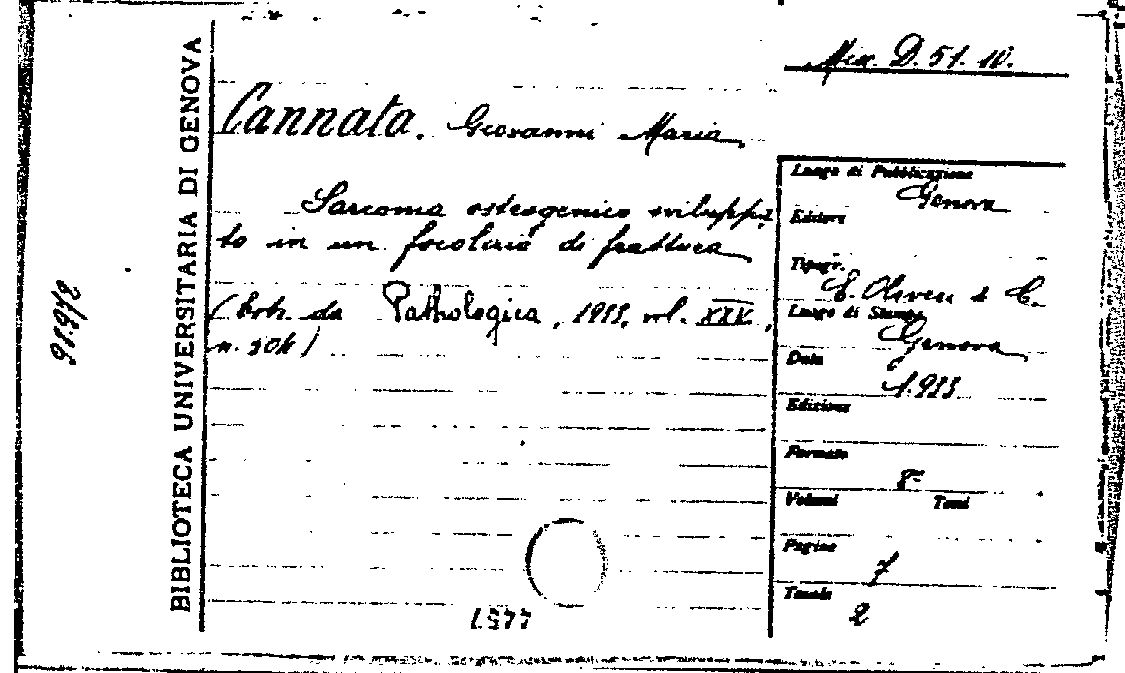 BIBLIOTECA UNIVERSITARIA DI GENOVA
Misc. D. 51. 10.
Cannata. Giovanni Maria
Sarcoma osteogenico sviluppa
to in un focolaio di frattura
(Estr. da Pathologica, 1933, vol. XXV,
n. 504)
Luogo di Pubblicazione
Genova
Editore
Tipogr.
E. Oliveri & C.
Luogo di Stampa
Genova
Data
1933
Edizione
Formato
8°
Volumi Tomi
Pagine
7
Tavole
2